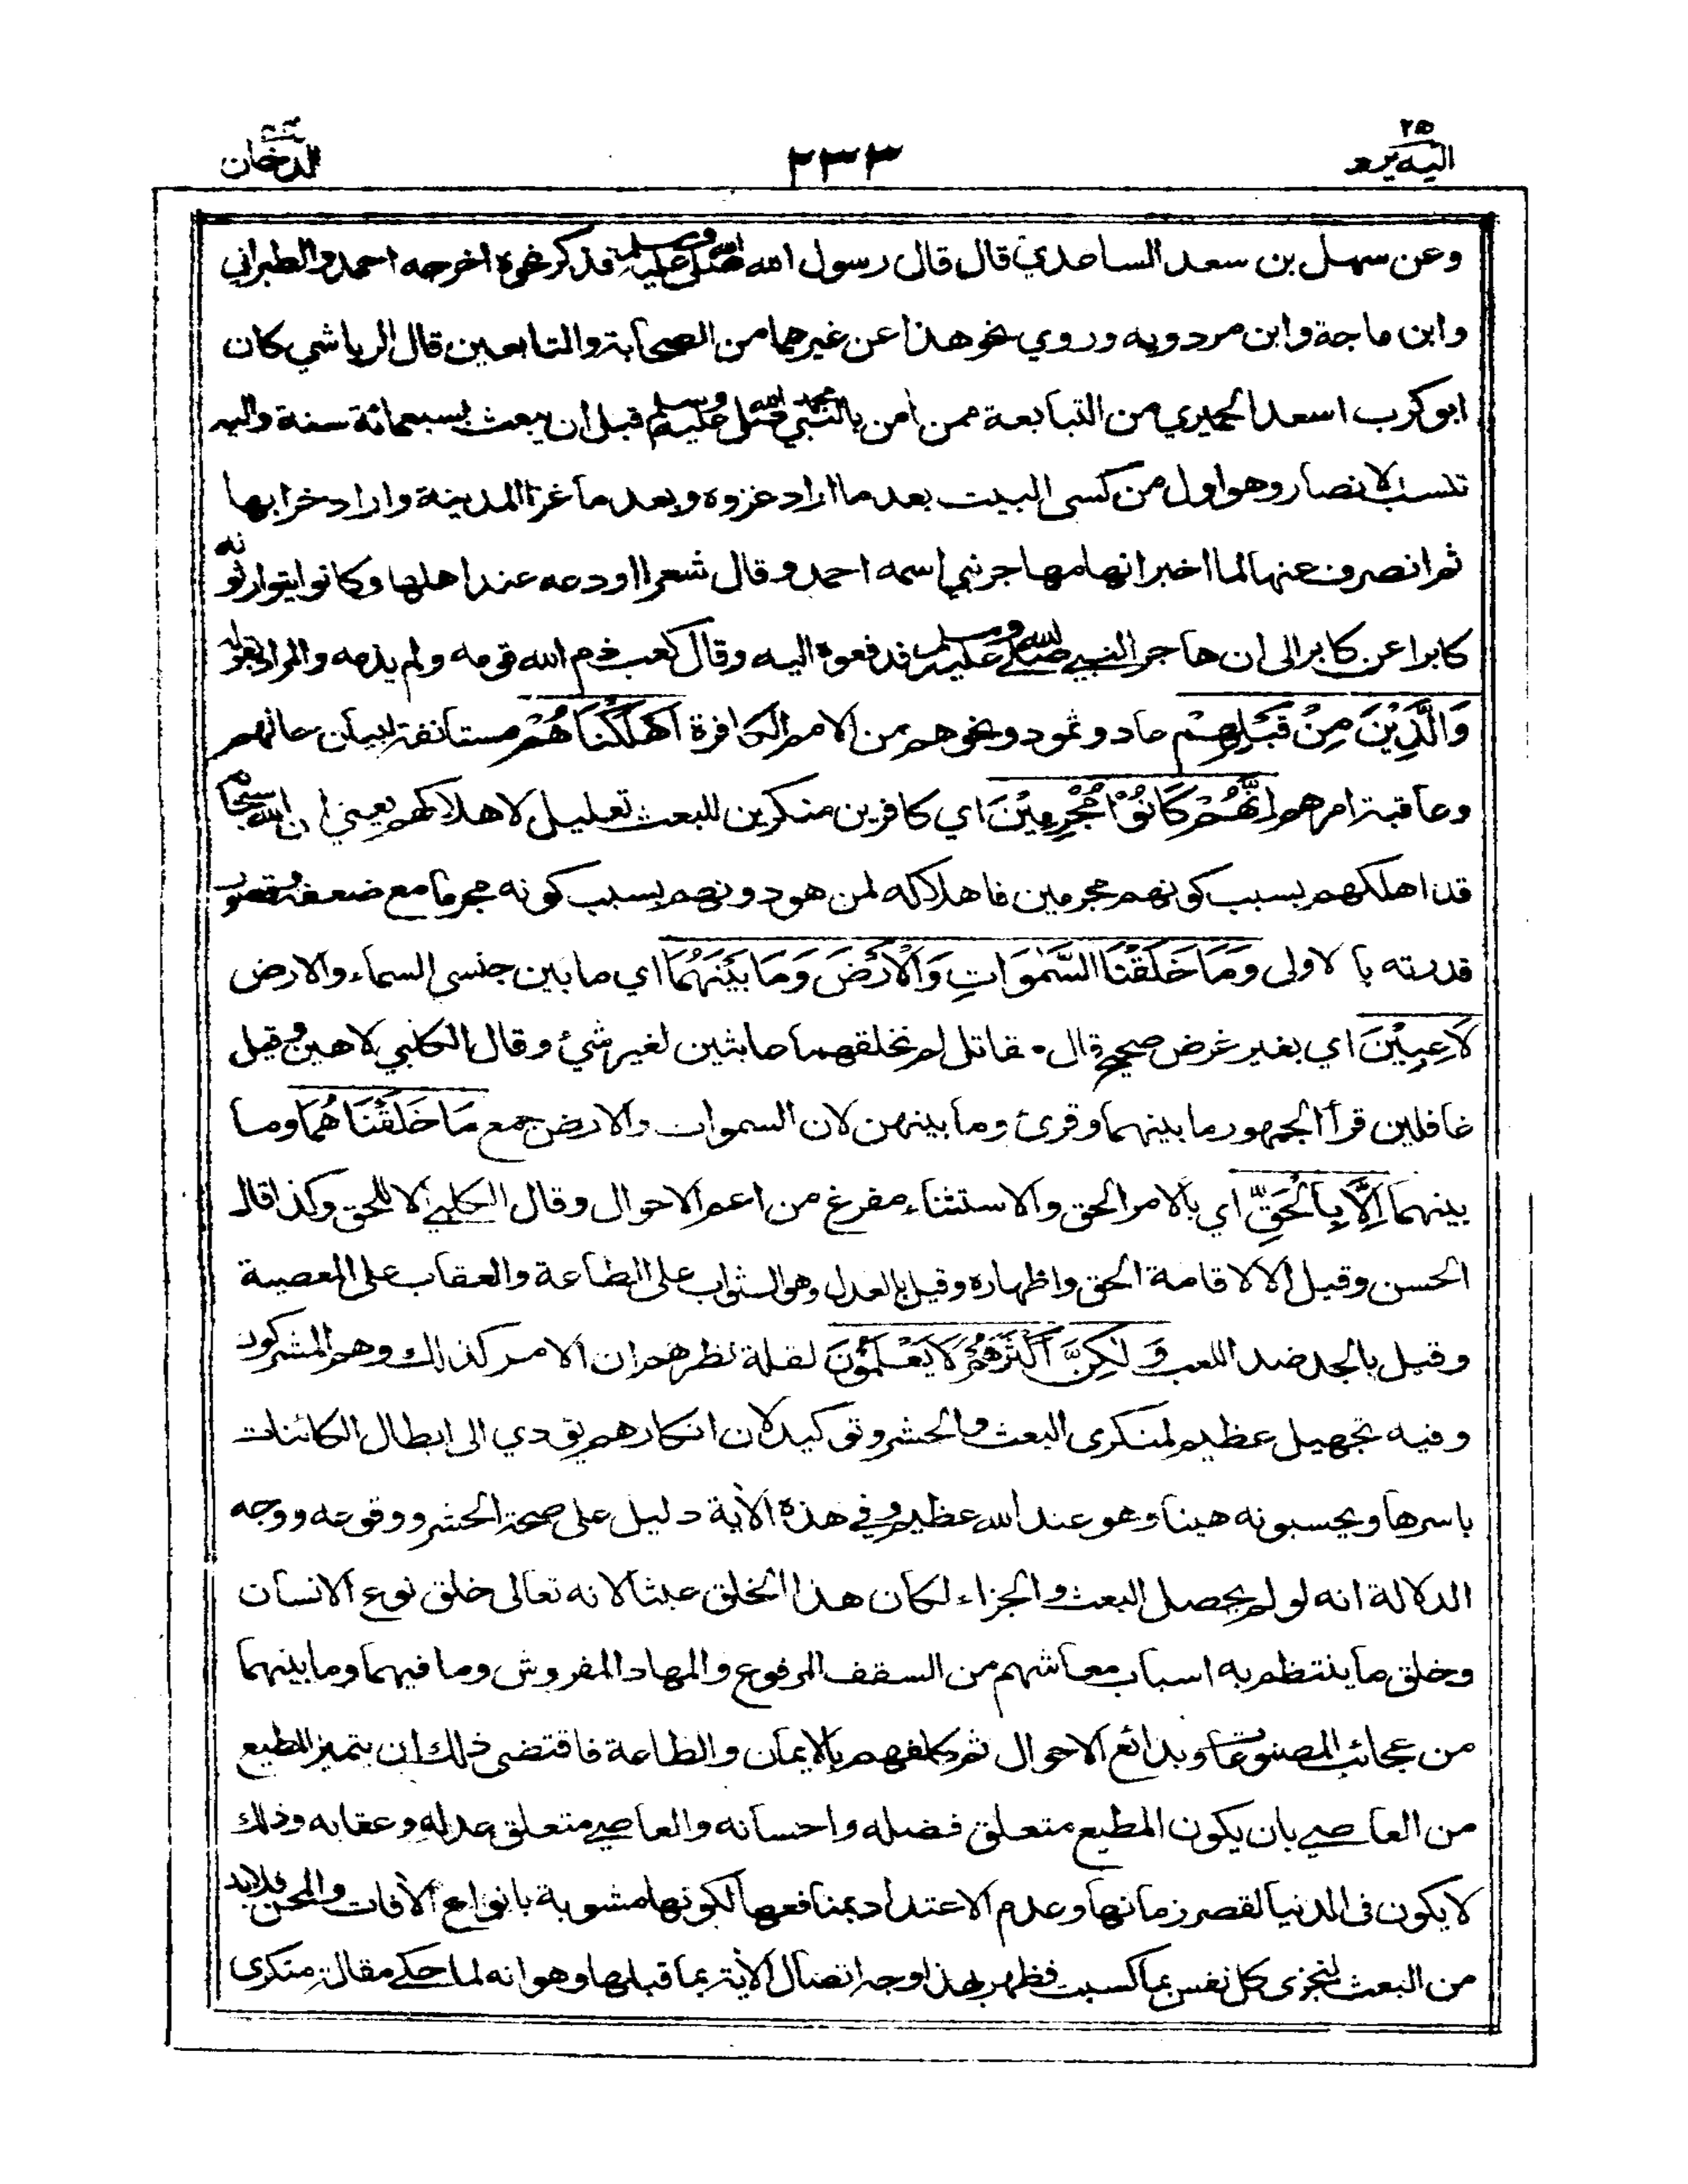 ٢٥
اليه يرد
٢٣٣
الدخان
وعن سهل بن سعد الساعدي قال قال رسول الله صلى الله عليه وسلم فذكر نحوه اخرجه احمد والطبراني
وابن ماجة وابن مردويه وروي نحو هذا عن غيرهما من الصحابة والتابعين قال الرياشي كان
ابوكرب اسعد الحميري من التبابعة ممن أمن بالنبي محمد صلى الله عليه وسلم قبل ان يبعث بسبعمائة سنة واليه
تنسب الانصار وهو اول من كسى البيت بعد ما اراد غزوه وبعد ما غزا المدينة واراد خرابها
ثم انصرف عنها لما اخبر انها مهاجر نبي اسمه احمد وقال شعرا اودعه عند اهلها وكانوا يتوارثونه
كابرا عن كابر الى ان هاجر النبي صلى الله عليه وسلم فدفعوه اليه وقال كعب ذم الله قومه ولم يذمه والمراد بقوله
وَالَّذِيْنَ مِنْ قَبْلِهِمْ عاد وثمود ونحوهم من الامم الكافرة اَهْلَكْنَاهُمْ مستأنفة لبيان حالهم
وعاقبة امرهم اِنَّهُمْ كَانُوْا مُجْرِمِيْنَ اي كافرين منكرين للبعث تعليل لاهلاكهم يعني ان الله سبحانه
قد اهلكهم بسبب كونهم مجرمين فاهلاكه لمن هو دونهم بسبب كونه مجرما مع ضعفه وقصور
قدرته بالاولى وَمَا خَلَقْنَا السَّمٰوَاتِ وَالْاَرْضَ وَمَا بَيْنَهُمَا اي ما بين جنسي السماء والارض
لَاعِبِيْنَ اي بغير غرض صحيح قال مقاتل لم نخلقهما عابثين لغير شئ وقال الكلبي لاهين وقيل
غافلين قرأ الجمهور ما بينهما وقرئ وما بينهن لان السموات والارض جمع مَا خَلَقْنَاهُمَا وما
بينهما اِلَّا بِالْحَقِّ اي بالامر الحق والاستثناء مفرغ من اعم الاحوال وقال الكلبي الا للحق وكذا قال
الحسن وقيل الا لاقامة الحق واظهاره وقيل بالعدل وهو الثواب على الطاعة والعقاب على المعصية
وقيل بالجد ضد اللعب وَلٰكِنَّ اَكْثَرَهُمْ لَا يَعْلَمُوْنَ لقلة نظرهم ان الامر كذلك وهم المشركون
وفيه تجهيل عظيم لمنكرى البعث والحشر وتوكيد لان انكارهم يؤدي الى ابطال الكائنات
باسرها ويحسبونه هينا وهو عند الله عظيم وفي هذه الأية دليل على صحة الحشر ووقوعه ووجه
الدلالة انه لو لم يحصل البعث والجزاء لكان هذا الخلق عبثا لانه تعالى خلق نوع الانسان
وخلق ما ينتظم به اسباب معاشهم من السقف المرفوع والمهاد المفروش وما فيهما وما بينهما
من عجائب المصنوعات وبدائع الاحوال ثم كلفهم بالايمان والطاعة فاقتضى ذلك ان يتميز المطيع
من العاصي بان يكون المطيع متعلق فضله واحسانه والعاصي متعلق عدله وعقابه وذلك
لا يكون فى الدنيا لقصر زمانها وعدم الاعتداد بمنافعها لكونها مشوبة بانواع الأفات والمحن فلابد
من البعث لتجزى كل نفس بما كسبت فظهر بهذا وجه اتصال الأية بما قبلها وهو انه لما حكي مقالة منكرى